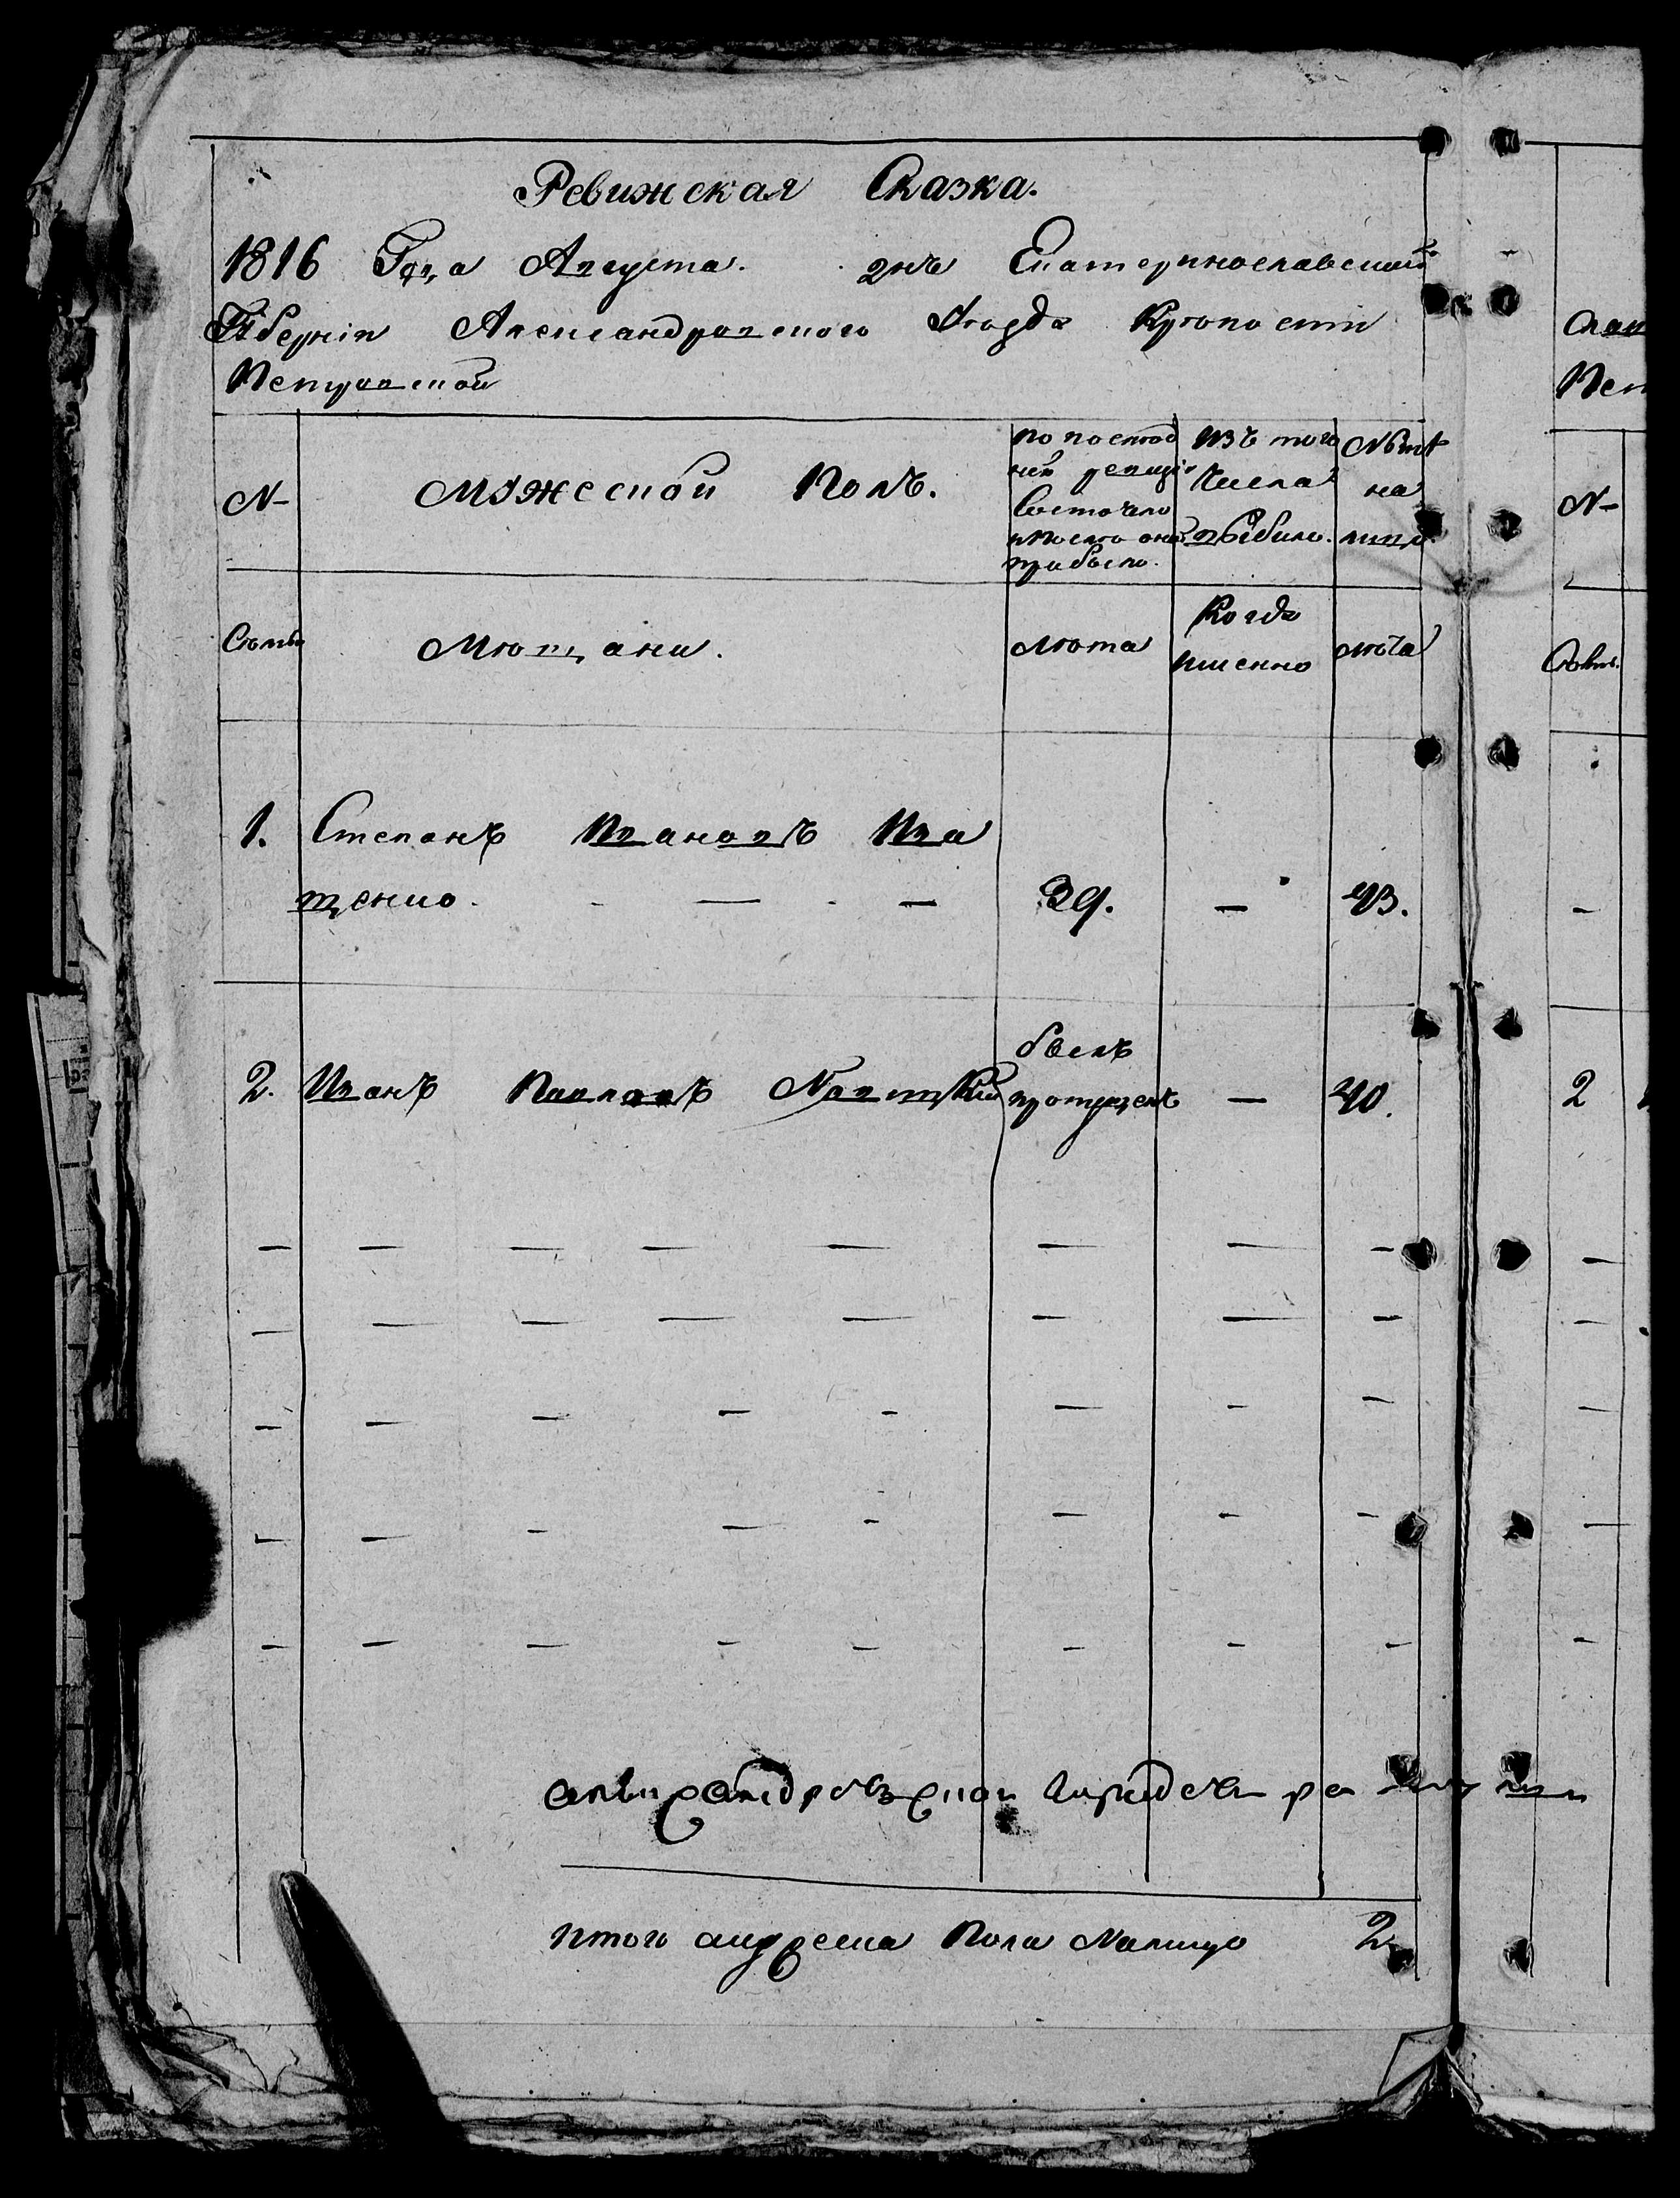 Ревижская Сказка.
1816 Года Августа. днъ Екатеринославской
Губерніи Александровского Уѣзда Крѣпости
Петровской
№
Мужеской Полъ.
по послѣд
ней ревизіи
Состояло
и послѣ оной
прибыло.
Изъ того
Числа
выбыло.
Нынѣ
на
лицо.
Семьи
Мѣщани.
Лѣта
Когда
имянно
лѣта
1. Степанъ Ивановъ Ива
щенко. — — 39. — 43.
2. Иванъ Павловъ
былъ
пропущенъ — 40.
Александровской
Итого мужеска Пола Налицо 2
№
2